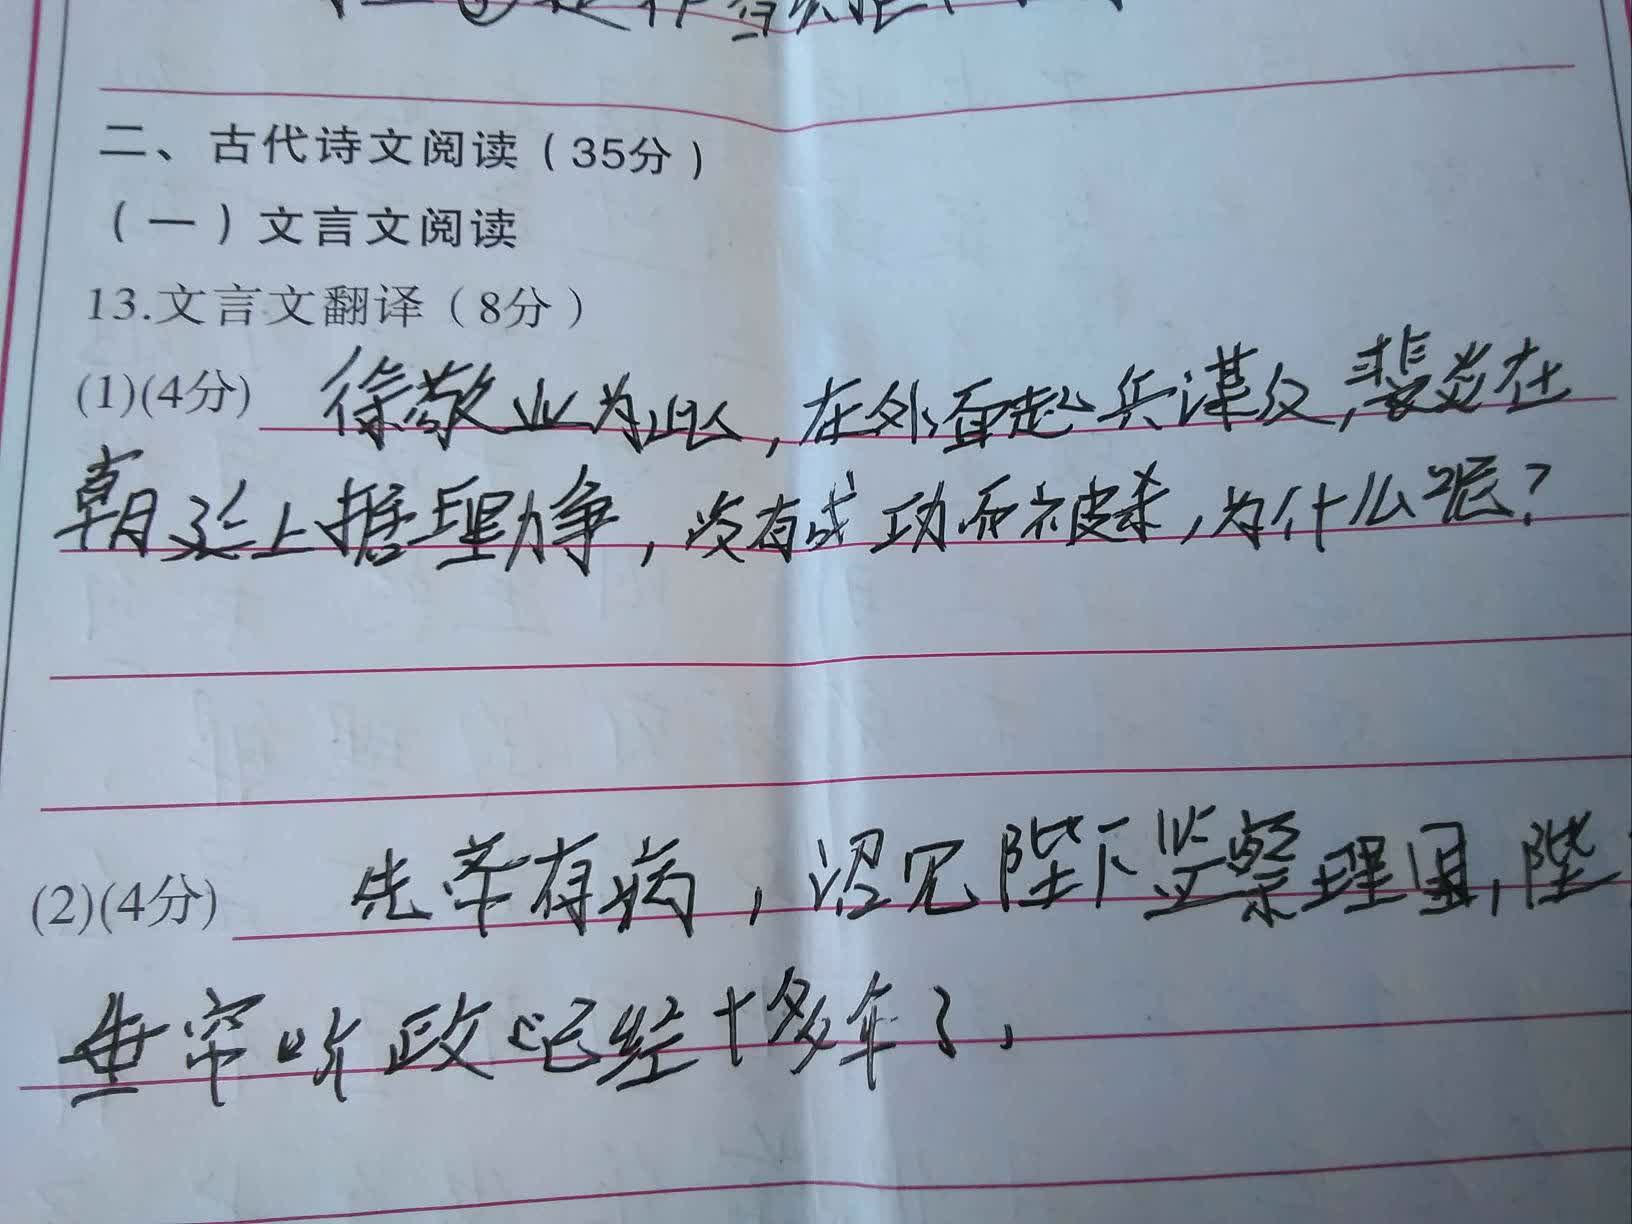 二、古代诗文阅读（35分）
（一）文言文阅读
13.文言文翻译（8分）
(1)(4分) 徐敬业为此，在外面起兵谋反，裴炎在
朝廷上据理力争，没有成功而被杀，为什么呢？
(2)(4分) 先帝有病，诏见陛下监察理国，陛
垂帘听政已经十多年了，